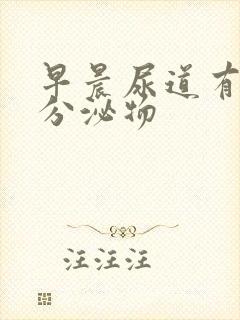 早晨尿道有
分泌物
汪汪汪